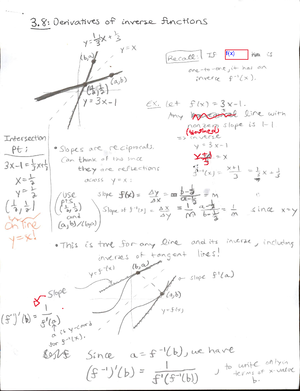 3.8: Derivatives of inverse functions
y = 1/3 x + 1/3
y = x
(b,a)
(a,b)
(1/2, 1/2)
y = 3x - 1
Recall: If f(x) is
one-to-one, it has an
inverse f⁻¹(x).
Ex: Let f(x) = 3x - 1.
Any line with
non zero slope is 1-1
⇒ inverse
y = 3x - 1
= x
f⁻¹(x) = x+1/3 = 1/3 x + 1/3
Intersection
Pt:
3x - 1 = 1/3 x + 1/3
x = 1/2
y = 1/2
(1/2, 1/2)
on line
y = x!
• Slopes are reciprocals
Can think of this since
they are reflections
across y = x:
Use
pts
(1/2, 1/2)
and
(a,b)/(b,a)
slope f(x) = Δy/Δx = = m
Slope of f⁻¹(x) = = 1/m since x↔y
• This is true for any line and its inverse, including
inverses of tangent lines!
y = f⁻¹(x)
(b,a)
slope f'(a)
(a,b)
y = f(x)
Slope
(f⁻¹)'(b) = 1/f'(a)
a is y-coord
for f⁻¹(x).
Since a = f⁻¹(b), we have
(f⁻¹)'(b) = 1/f'(f⁻¹(b)) , to write only in
terms of x-value
b.